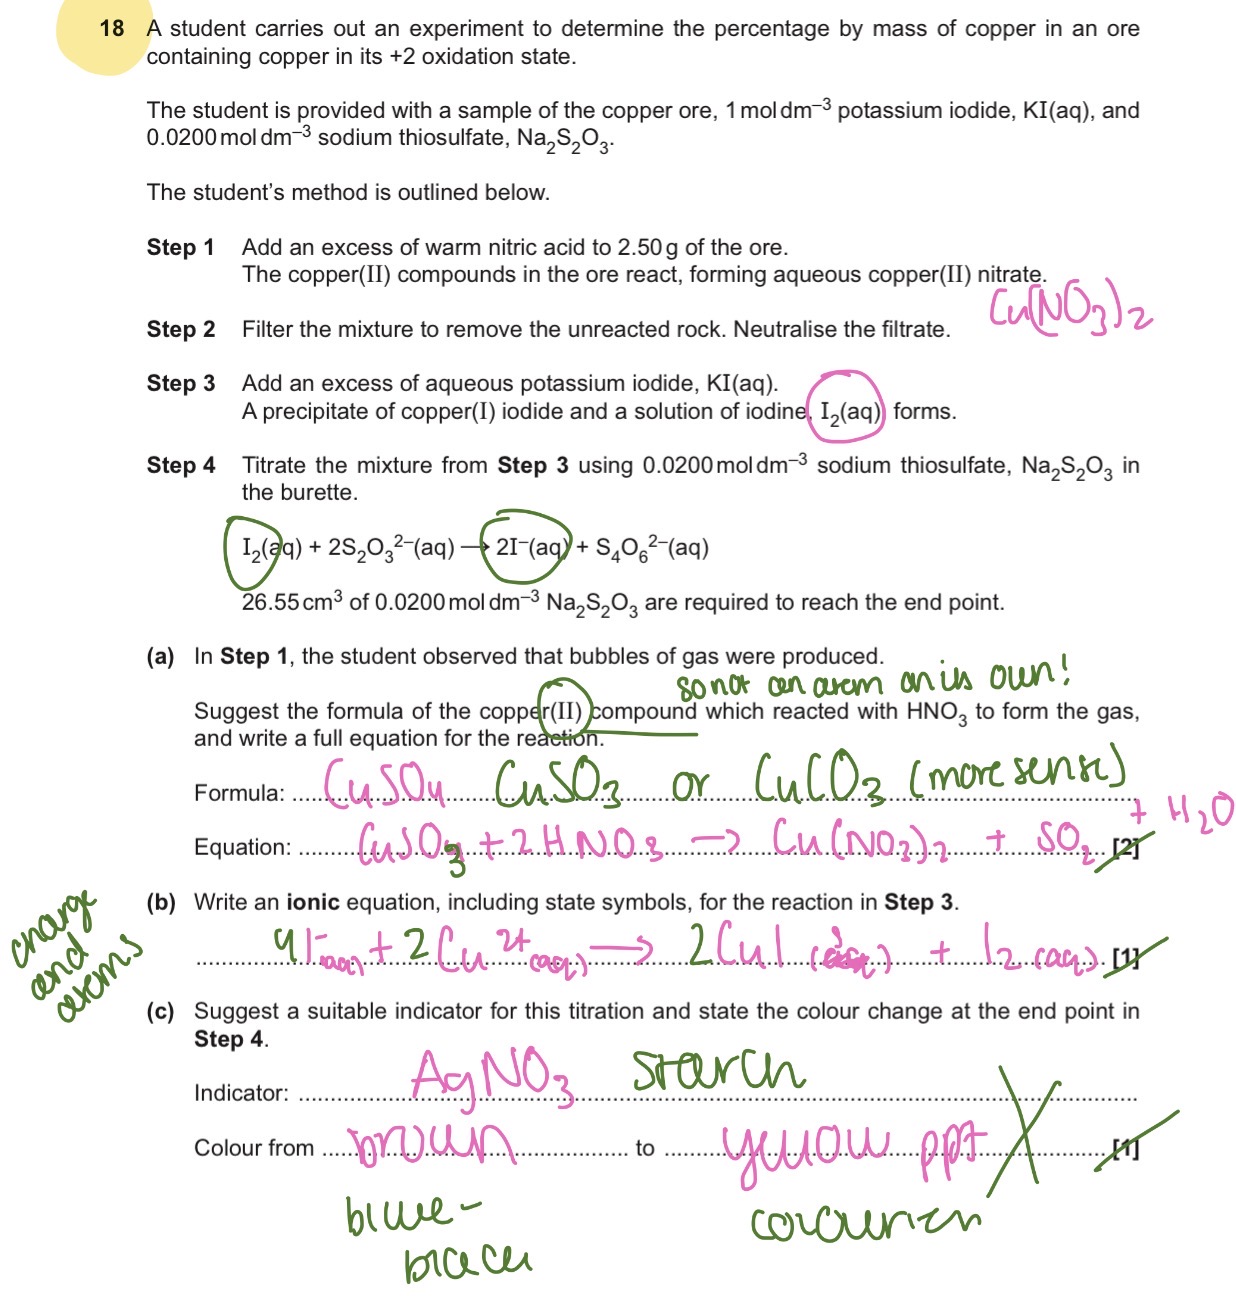 18 A student carries out an experiment to determine the percentage by mass of copper in an ore
containing copper in its +2 oxidation state.
The student is provided with a sample of the copper ore, 1 mol dm⁻³ potassium iodide, KI(aq), and
0.0200 mol dm⁻³ sodium thiosulfate, Na₂S₂O₃.
The student's method is outlined below.
Step 1 Add an excess of warm nitric acid to 2.50 g of the ore.
The copper(II) compounds in the ore react, forming aqueous copper(II) nitrate.
Cu(NO₃)₂
Step 2 Filter the mixture to remove the unreacted rock. Neutralise the filtrate.
Step 3 Add an excess of aqueous potassium iodide, KI(aq).
A precipitate of copper(I) iodide and a solution of iodine, I₂(aq), forms.
Step 4 Titrate the mixture from Step 3 using 0.0200 mol dm⁻³ sodium thiosulfate, Na₂S₂O₃ in
the burette.
I₂(aq) + 2S₂O₃²⁻(aq) → 2I⁻(aq) + S₄O₆²⁻(aq)
26.55 cm³ of 0.0200 mol dm⁻³ Na₂S₂O₃ are required to reach the end point.
(a) In Step 1, the student observed that bubbles of gas were produced.
so not an atom on its own!
Suggest the formula of the copper(II) compound which reacted with HNO₃ to form the gas,
and write a full equation for the reaction.
Formula: CuSO₄ CuSO₃ or CuCO₃ (more sense)
Equation: CuSO₃ + 2HNO₃ → Cu(NO₃)₂ + SO₂ + H₂O [2]
(b) Write an ionic equation, including state symbols, for the reaction in Step 3.
charge
and
atoms
4I⁻(aq) + 2Cu²⁺(aq) → 2CuI (s) + I₂ (aq) [1]
(c) Suggest a suitable indicator for this titration and state the colour change at the end point in
Step 4.
Indicator: AgNO₃ starch
Colour from brown to yellow ppt [1]
blue-
black
colourless